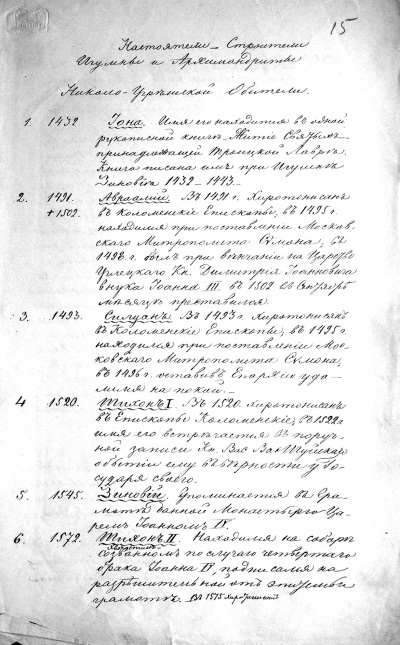 15
Настоятели – Строители
Игумны и Архимандриты
Николо-Угрѣшской Обители.
1. 1432. Іона. Имя его находится въ одной
рукописной книгѣ – Житіе Святыхъ –
принадлежащей Троицкой Лаврѣ.
Книга писана имъ при Игуменѣ
Зиновіѣ 1432–1443.–
2. 1491. Авраамій. Въ 1491 г. Хиротонисанъ
+ 1502. въ Коломенскіе Епископы, въ 1495 г.
находился при поставленіи Москов-
скаго Митрополита Симона, въ
1498 г. былъ при вѣнчаніи на Царство
Углецкаго Кн. Димитрія Іоанновича
внука Іоанна III. въ 1502 въ
мѣсяцѣ преставился.
3. 1493. Въ 1493 г. Хиротонисанъ
въ Коломенскіе Епископы; въ 1495 г.
находился при поставленіи Мос-
ковскаго Митрополита Симона;
въ 1496 г. оставивъ Епархію уда-
лился на покой.–
4 1520. Тихонъ I. Въ 1520. Хиротонисанъ
въ Епископы Коломенскіе; въ 1522 г.
имя его встрѣчается въ поруч-
ной записи Кн. Вас. Вас. Шуйскаго
ему вѣрности у Го-
сударя своего.
5. 1545. Зиновій. Упоминается въ Гра-
мотѣ данной Монастырю Ца-
ремъ Іоанномъ IV.
6. 1572. Тихонъ II. Находился на соборѣ
созванномъ по случаю четвертаго
брака Іоанна IV, подписался на
разрѣшительной отъ эпитиміи
грамотѣ. Въ 1575